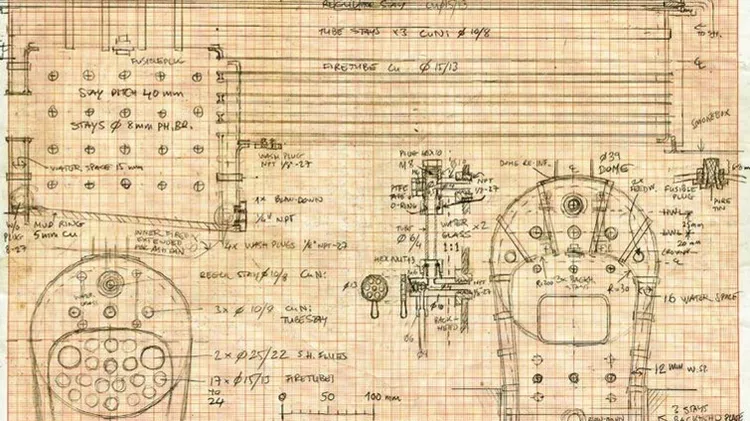 REGULATOR STAY CU 15/13
TUBE STAYS ×3 CuNi Ø 10/8
FIRETUBE Cu Ø 15/13
FUSIBLE PLUG
STAY PITCH 40 mm
STAYS Ø 8mm PH.BR.
WATER SPACE 15 mm
WASH PLUG
NPT 1/8"-27
1× BLOW-DOWN
1/8" NPT
MUD RING
5mm CU
W/O
PLUG
8-27
INNER FIREBOX
EXTENDED
FOR
4× WASH PLUGS 1/8" NPT-27
REGUL STAY Ø 10/8 CuNi
3× Ø 10/8 CuNi
TUBESTAY
2× Ø 25/22 S.H. FLUES
17× Ø 15/13 FIRETUBES
24
0 50 100 mm
SMOKEBOX
M8
NPT
1/8-27
PTFE
O-RING
TUBE
Ø 6/4
WATER
GLASS ×2
1:1
HEX NUTS
BACK-
HEAD
DOME RE-INF.
Ø39
DOME
FUSIBLE
PLUG
HWL
25mm
LWL
20 mm
CROWN
FIRE
TIN
R=200
3× BACKH.
STAYS
R=30
16 WATER SPACE
12 mm W.SP.
2 STAYS
BACKHEAD PLATE